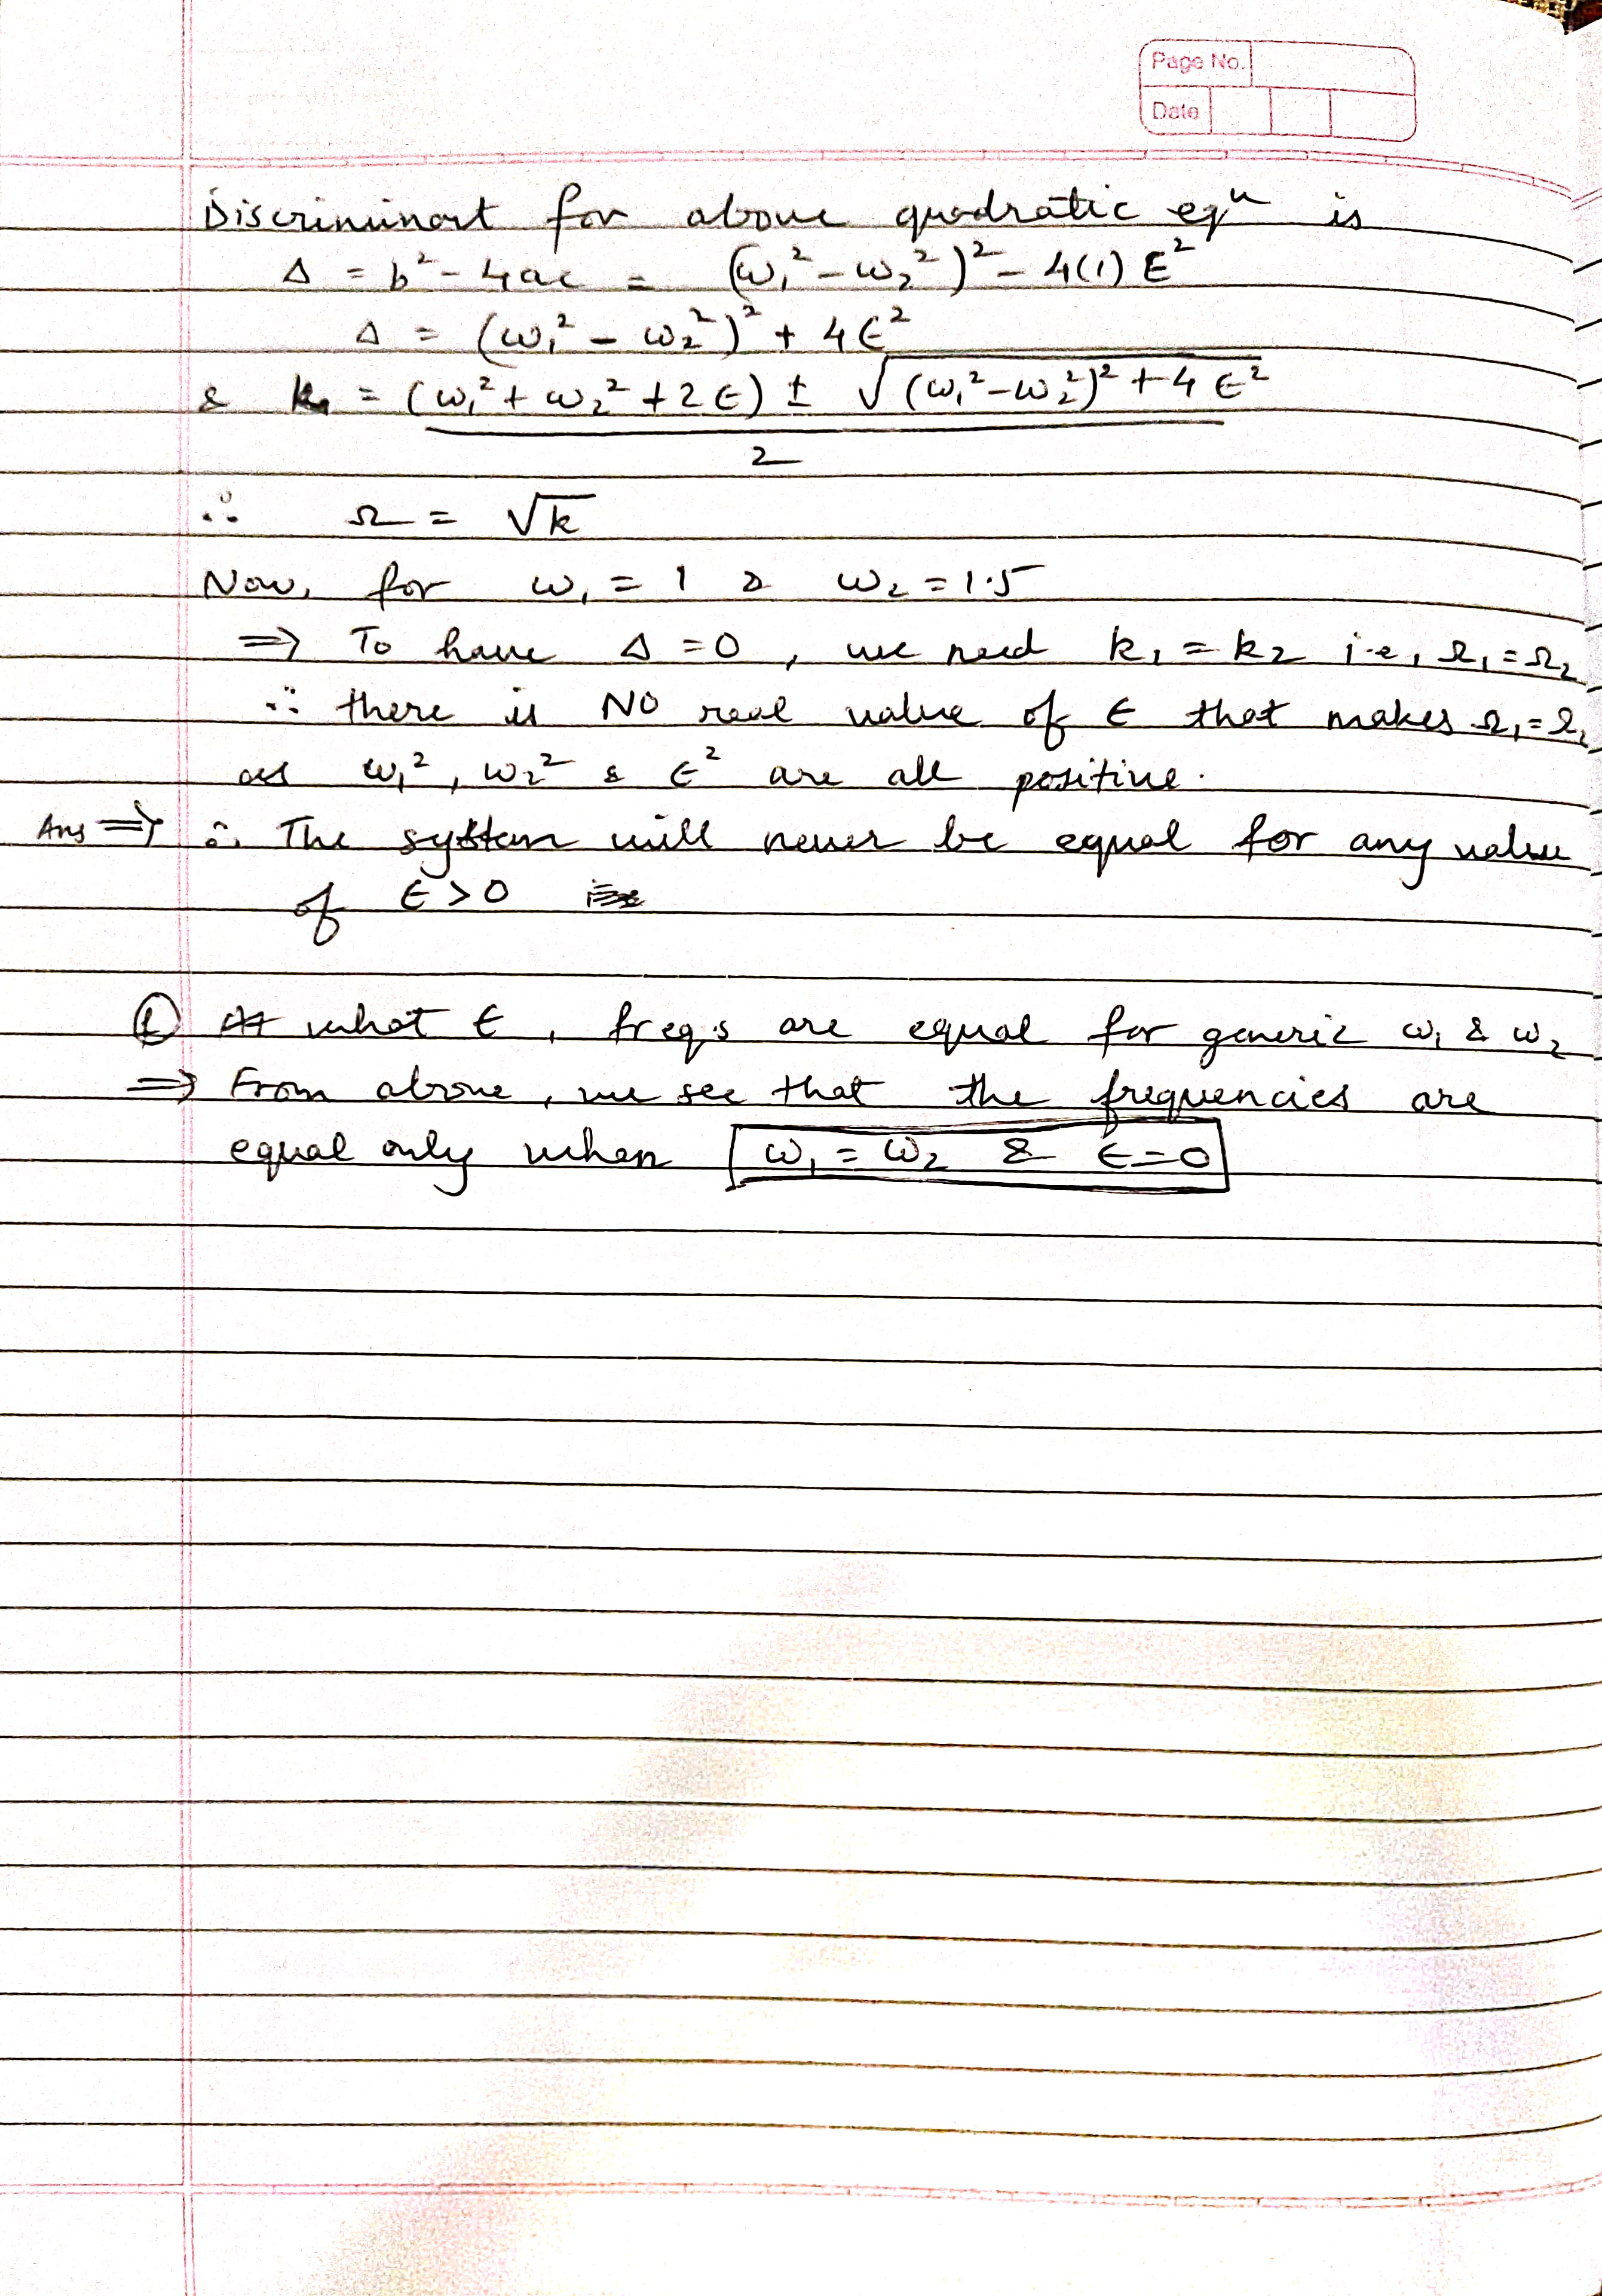 Page No.
Date
Discriminant for above quadratic eqⁿ is
Δ = b² - 4ac = (ω₁² - ω₂²)² - 4(1) E²
Δ = (ω₁² - ω₂²)² + 4ϵ²
& k = (ω₁² + ω₂² + 2ϵ) ± √(ω₁² - ω₂²)² + 4ϵ²
2
∴ Ω = √k
Now, for ω₁ = 1 & ω₂ = 1.5
⇒ To have Δ = 0, we need k₁ = k₂ i.e, Ω₁ = Ω₂
∴ there is NO real value of ϵ that makes Ω₁ = Ω₂
as ω₁², ω₂² & ϵ² are all positive.
Ans ⇒ ∴ The system will never be equal for any value
of ϵ > 0
① At what ϵ, freqs are equal for generic ω₁ & ω₂
⇒ From above, we see that the frequencies are
equal only when ω₁ = ω₂ & ϵ = 0